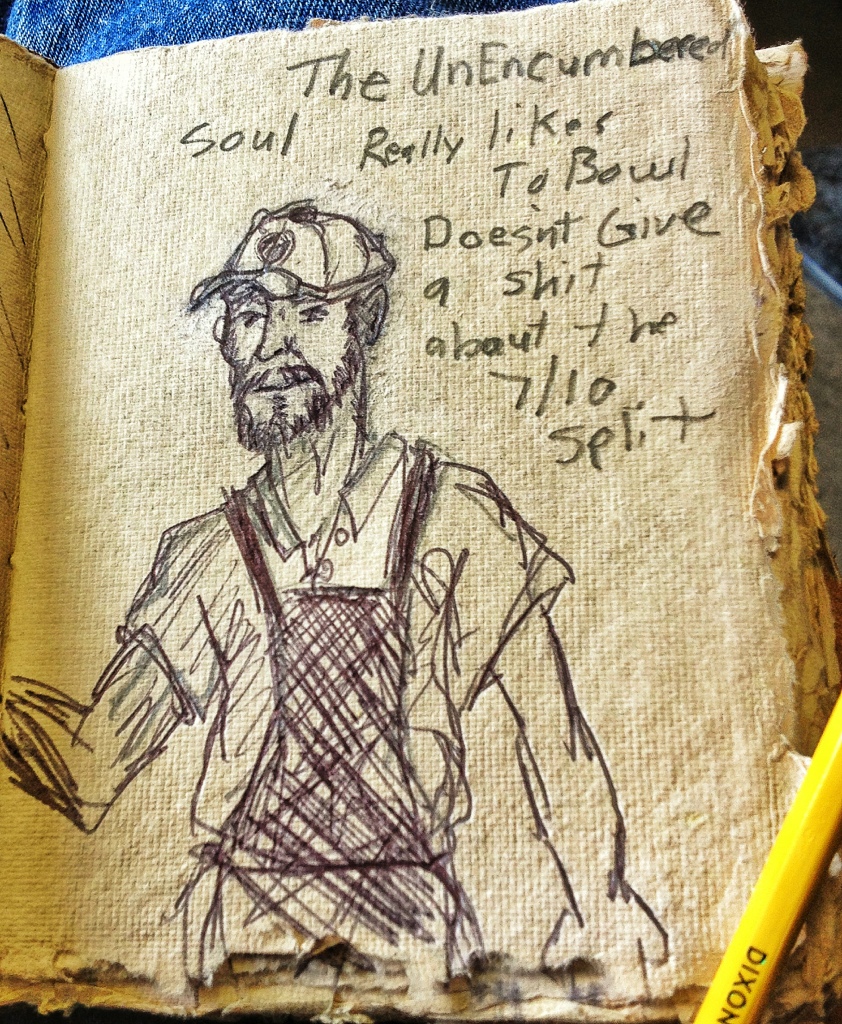 The UnEncumbered
Soul Really likes
To Bowl
Doesn't Give
a shit
about the
7/10
split
DIXON